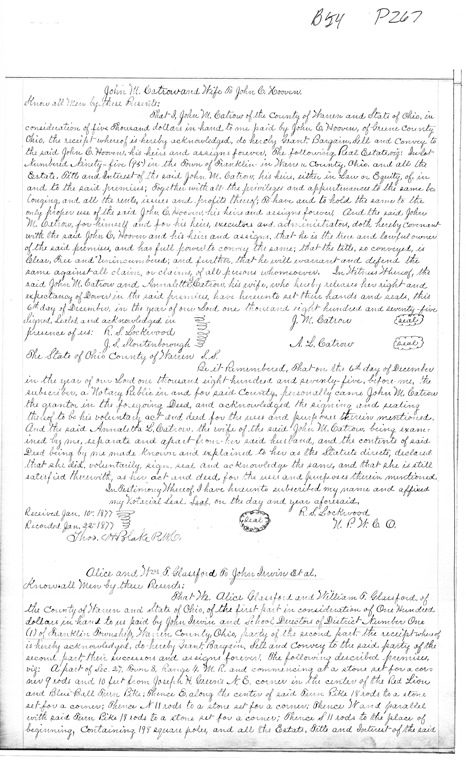 B54 P267
John M. Catrow and Wife To John C. Hoover.
Know all Men by these Presents;
That I, John M. Catrow of the County of Warren and State of Ohio, in
consideration of five Thousand dollars in hand to me paid by John C. Hoover, of Greene County
Ohio, the receipt whereof is hereby acknowledged, do hereby Grant, Bargain, Sell and Convey to
the said John C. Hoover, his heirs and assigns forever, The following Real Estate, viz: In Lot
Numbered Ninety-five (95) in the Town of Franklin in Warren County, Ohio, and all the
Estate, Title and Interest of the said John M. Catrow, his heirs, either in Law or Equity, of in
and to the said premises; Together with all the privileges and appurtenances to the same be
longing, and all the rents, issues and profits thereof; To have and to hold the same to the
only proper use of the said John C. Hoover, his heirs and assigns forever. And the said John
M. Catrow, for himself and for his heirs, executors and administrators, doth hereby covenant
with the said John C. Hoover and his heirs and assigns, that he is the true and lawful owner
of the said premises, and has full power to convey the same; that the title, so conveyed, is
Clear, Free and Unincumbered; and further, that he will warrant and defend the
same against all claim, or claims, of all persons whomsoever. In Witness Whereof, the
said John M. Catrow and Annaletta Catrow, his wife, who hereby releases her right and
expectancy of Dower in the said premises, have hereunto set their hands and seals, this
6th day of December, in the year of our Lord one thousand eight hundred and seventy-five
Signed, Sealed and acknowledged in J. M. Catrow (Seal)
presence of us: R. S. Lockwood
J. S. A. L. Catrow (Seal)
The State of Ohio County of Warren S.S.
Be it Remembered, That on the 6th day of December
in the year of our Lord one thousand eight hundred and seventy-five, before me, the
subscriber, a Notary Public in and for said County, personally came John M. Catrow
the grantor in the foregoing Deed, and acknowledged the signing and sealing
thereof to be his voluntary act and deed for the uses and purposes therein mentioned.
And the said Annaletta L. Catrow, the wife of the said John M. Catrow, being exam-
ined by me, separate and apart from her said husband, and the contents of said
Deed being by me made known and explained to her as the Statute directs, declared
that she did, voluntarily sign, seal and acknowledge the same, and that she is still
satisfied therewith, as her act and deed, for the uses and purposes therein mentioned.
In Testimony Whereof, I have hereunto subscribed my name and affixed
my Notarial Seal on the day and year aforesaid.
Received Jan. 10th 1877 R. S. Lockwood
Recorded Jan. 22nd 1877 (Seal) N. P. W. C. O.
Thos. Blake R.W.C.
Alice and Wm. F. Glassford To John Irwin Et al.
Know all Men by these Presents;
That We Alice Glassford and William F. Glassford, of
the County of Warren and State of Ohio, of the first part in consideration of One Hundred
dollars in hand to us paid by John Irwin and School Directors of District Number One
(1) of Franklin Township, Warren County Ohio, party of the second part the receipt whereof
is hereby acknowledged, do hereby Grant, Bargain, Sell and Convey to the said party of the
second part their successors and assigns forever. The following described premises,
viz: A part of Sec. 27, Town 2, Range 5 M.R. and commencing at a stone set for a cor-
ner 9 rods and 10 feet from Joseph H. Green's N.E. corner in the center of the Red Lion
and Blue Ball Turn Pike; Thence E along the center of said Turn Pike 18 rods to a stone
set for a corner; Thence N 11 rods to a stone set for a corner; Thence W and parallel
with said Turn Pike 18 rods to a stone set for a corner; Thence S 11 rods to the place of
beginning, Containing 198 square poles, and all the Estate, Title and Interest of the said